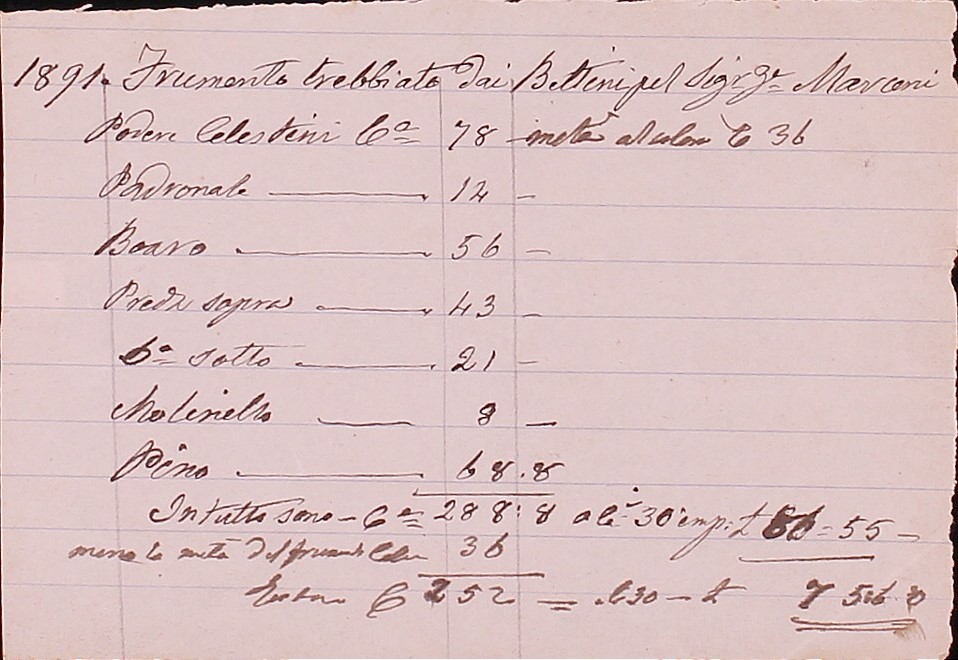 1891. Frumento trebbiato dai Bettini pel Sigr Ge Marconi
Podere Celestini Ca 78 – metà al colono C 36
Padronale 12 –
Boaro 56 –
Preda sopra 43 –
Ca sotto 21 –
Molinello 8 –
Pino 68.8
In tutto sono – Ca 288:8 a 30 imp: £ 86-55 –
meno la metà del 36
C 252 = 30 – £ 7 56